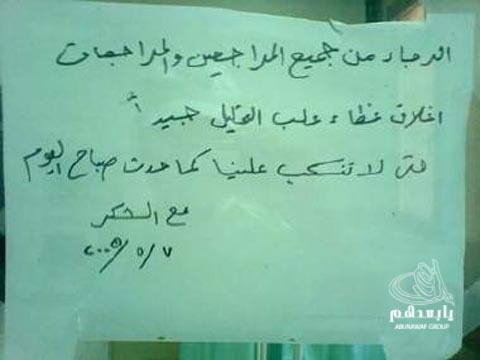 الرجاء من جميع المراجعين والمراجعات
اغلاق غطاء علب التحليل جيداً
حتى لا تنسكب علينا كما حدث صباح اليوم
مع الشكر
٢٠٠٥/٥/٧
يا بعدهم
ABUNAWAF GROUP